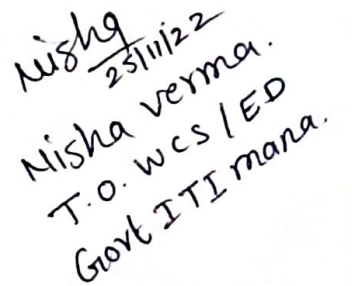 Nisha
25/11/22
Nisha verma.
T.O. WCS / ED
Govt ITI mana.